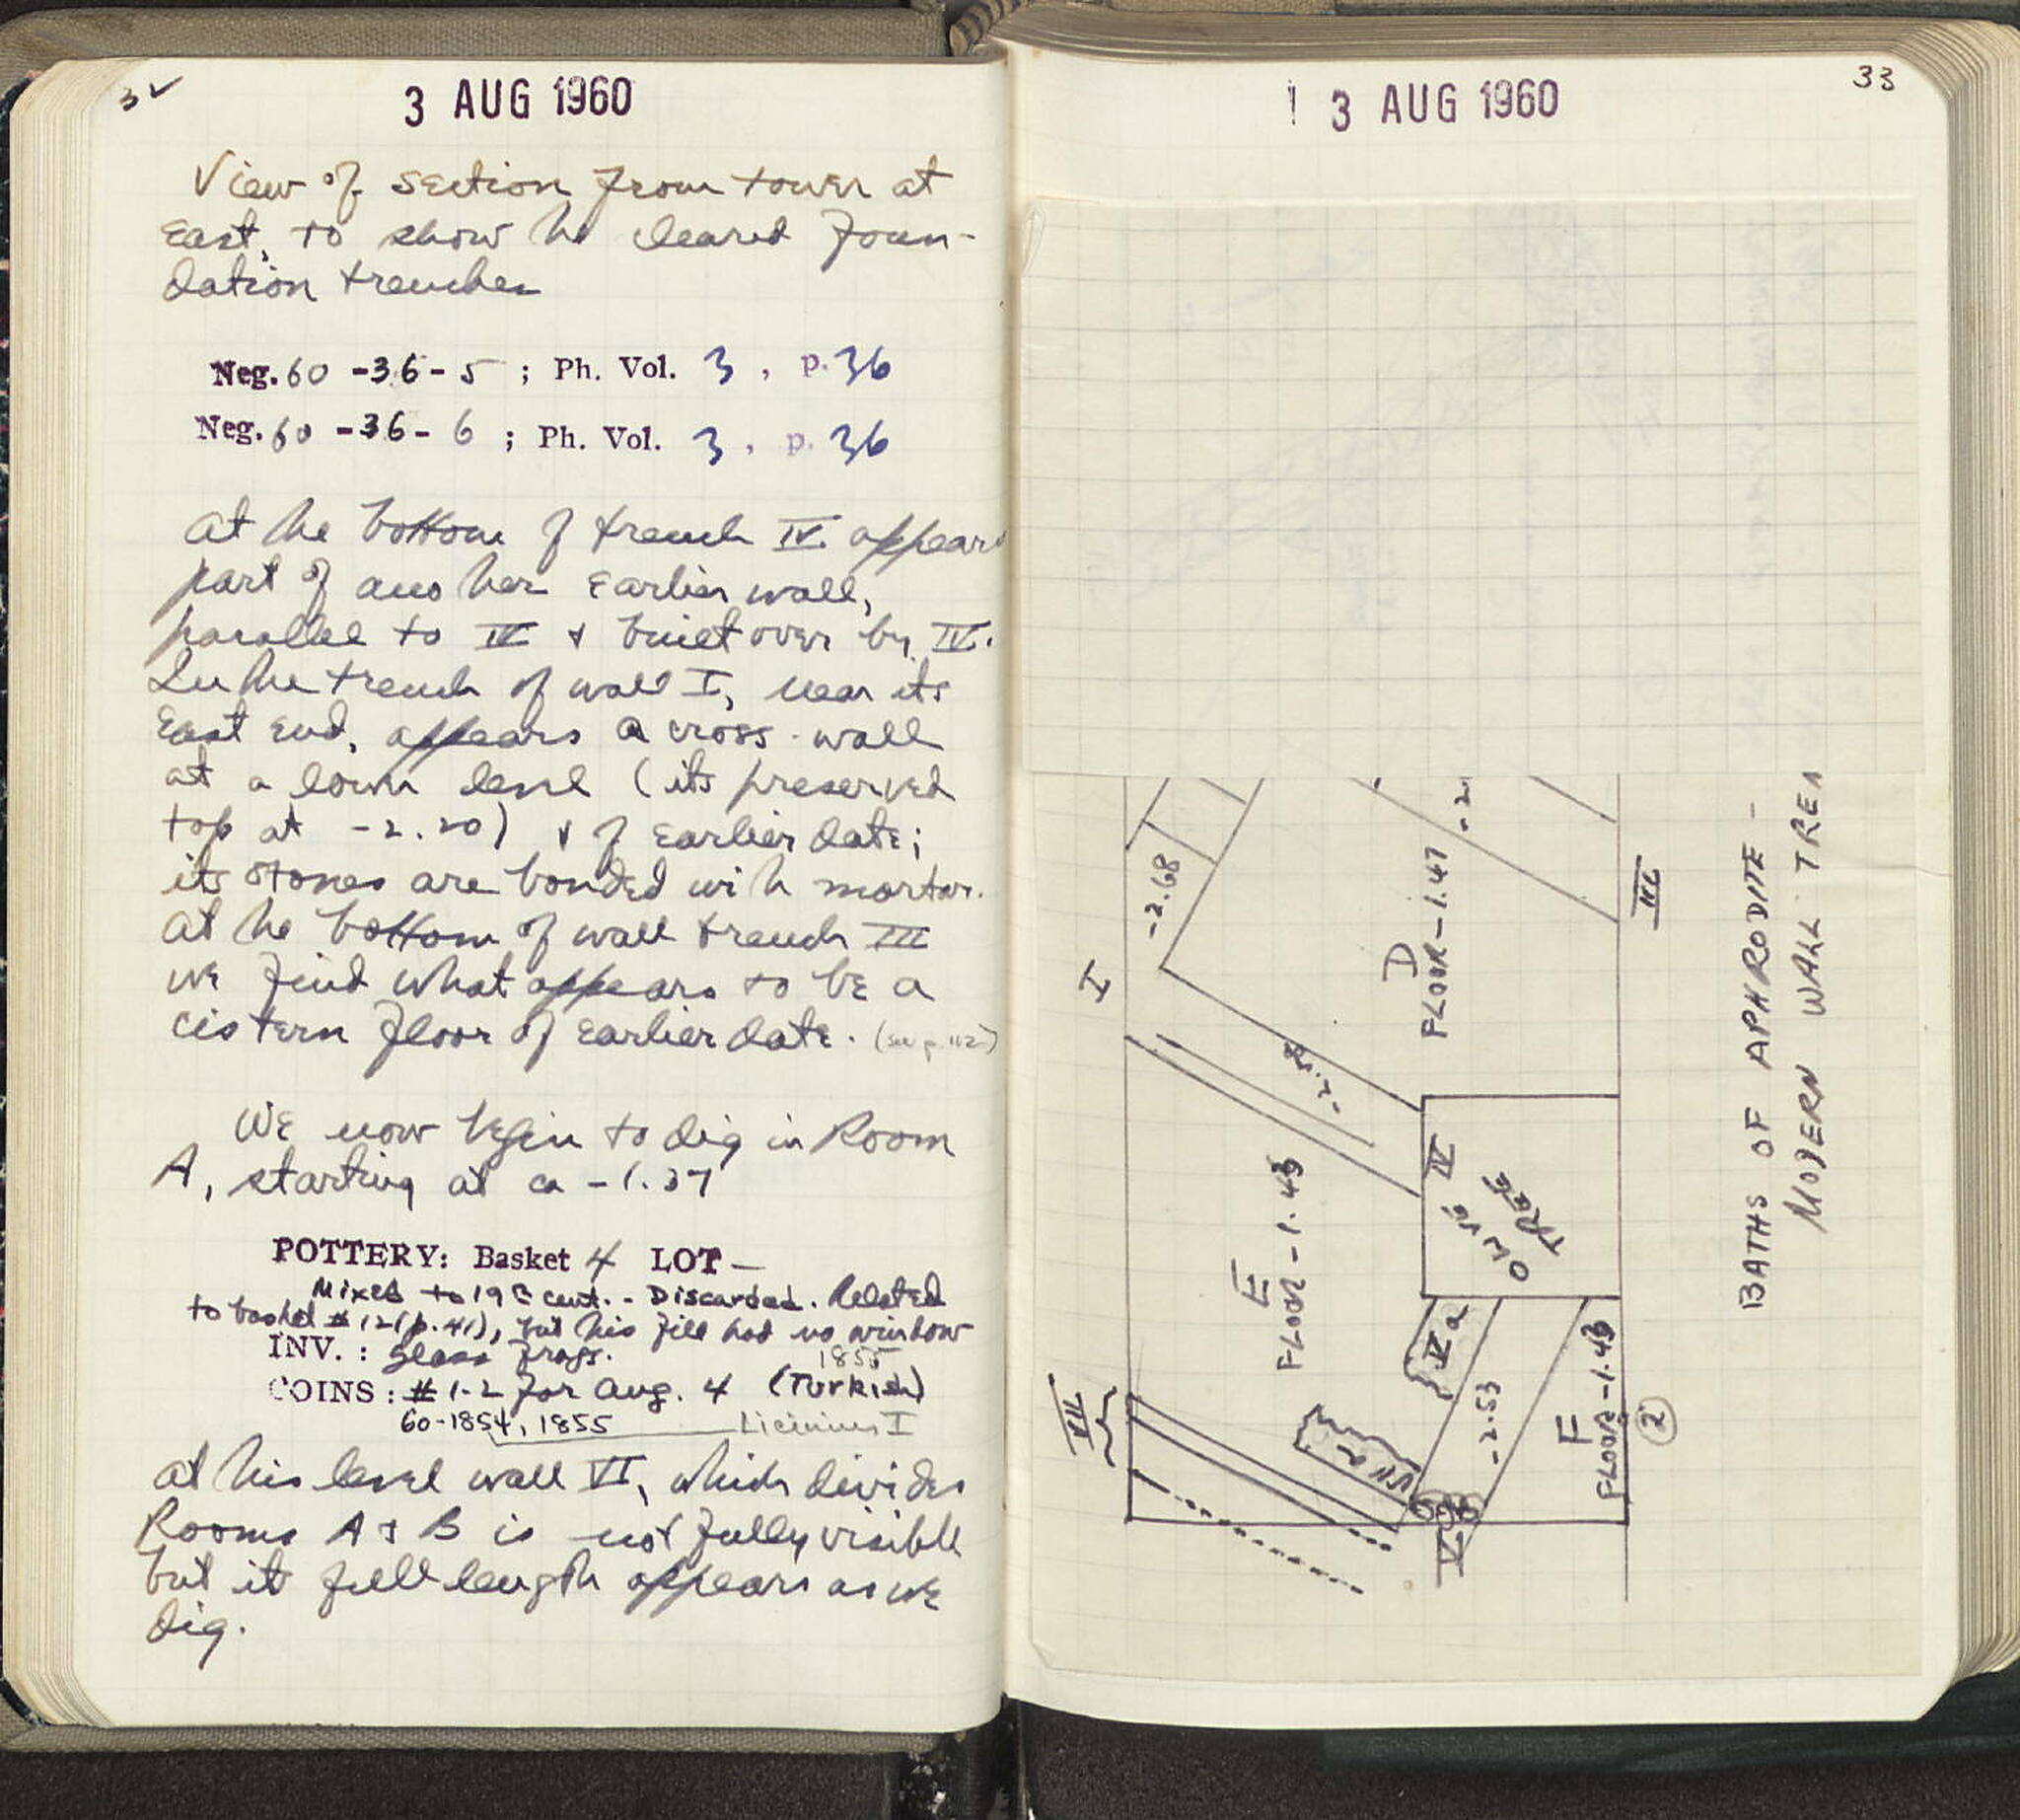 32
3 AUG 1960
View of section from tower at
East, to show the cleared foun-
dation trenches
Neg. 60 -36- 5 ; Ph. Vol. 3 , p. 36
Neg. 60 -36- 6 ; Ph. Vol. 3 , p. 36
At the bottom of trench IV appears
part of another Earlier wall,
parallel to IV & built over by IV.
In the trench of wall I, near its
East End, appears a cross-wall
at a lower level (its preserved
top at -2.20) & of Earlier date;
its stones are bonded with mortar.
At the bottom of wall trench III
we find what appears to be a
cistern floor of Earlier date. (see p. 112)
We now begin to dig in Room
A, starting at ca -1.37
POTTERY: Basket 4 LOT –
Mixed to 19th cent. - Discarded. Related
to basket # 12 (p. 41), but this fill had no window
INV. : glass frags.
1855
COINS : # 1-2 for Aug. 4 (Turkish)
60-1854, 1855 Licinius I
At this level wall VI, which divides
Rooms A & B is not fully visible
but its full length appears as we
dig.
33
3 AUG 1960
-2.68
-2.
I
D
FLOOR -1.47
III
IV
OWYG
TREE
E
FLOOR -1.43
Va
-2.53
F
FLOOR -1.43
2
VII
V
BATHS OF APHRODITE -
MODERN WALL TREN